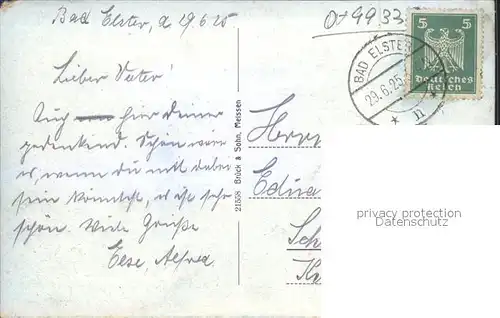 Bad Elster, d 29.6.25
0+99 33
5 5
Deutsches
Reich
BAD ELSTER
29.6.25
* n *
Lieber Vater!
Auch hier Deiner
gedenkend. Schön wäre
es, wenn du mit dabei
sein könntest, es ist sehr
schön. Viele Grüße
Else, Alfred.
21558 Brück & Sohn, Meissen
Herrn
Edua
Sch
privacy protection
Datenschutz